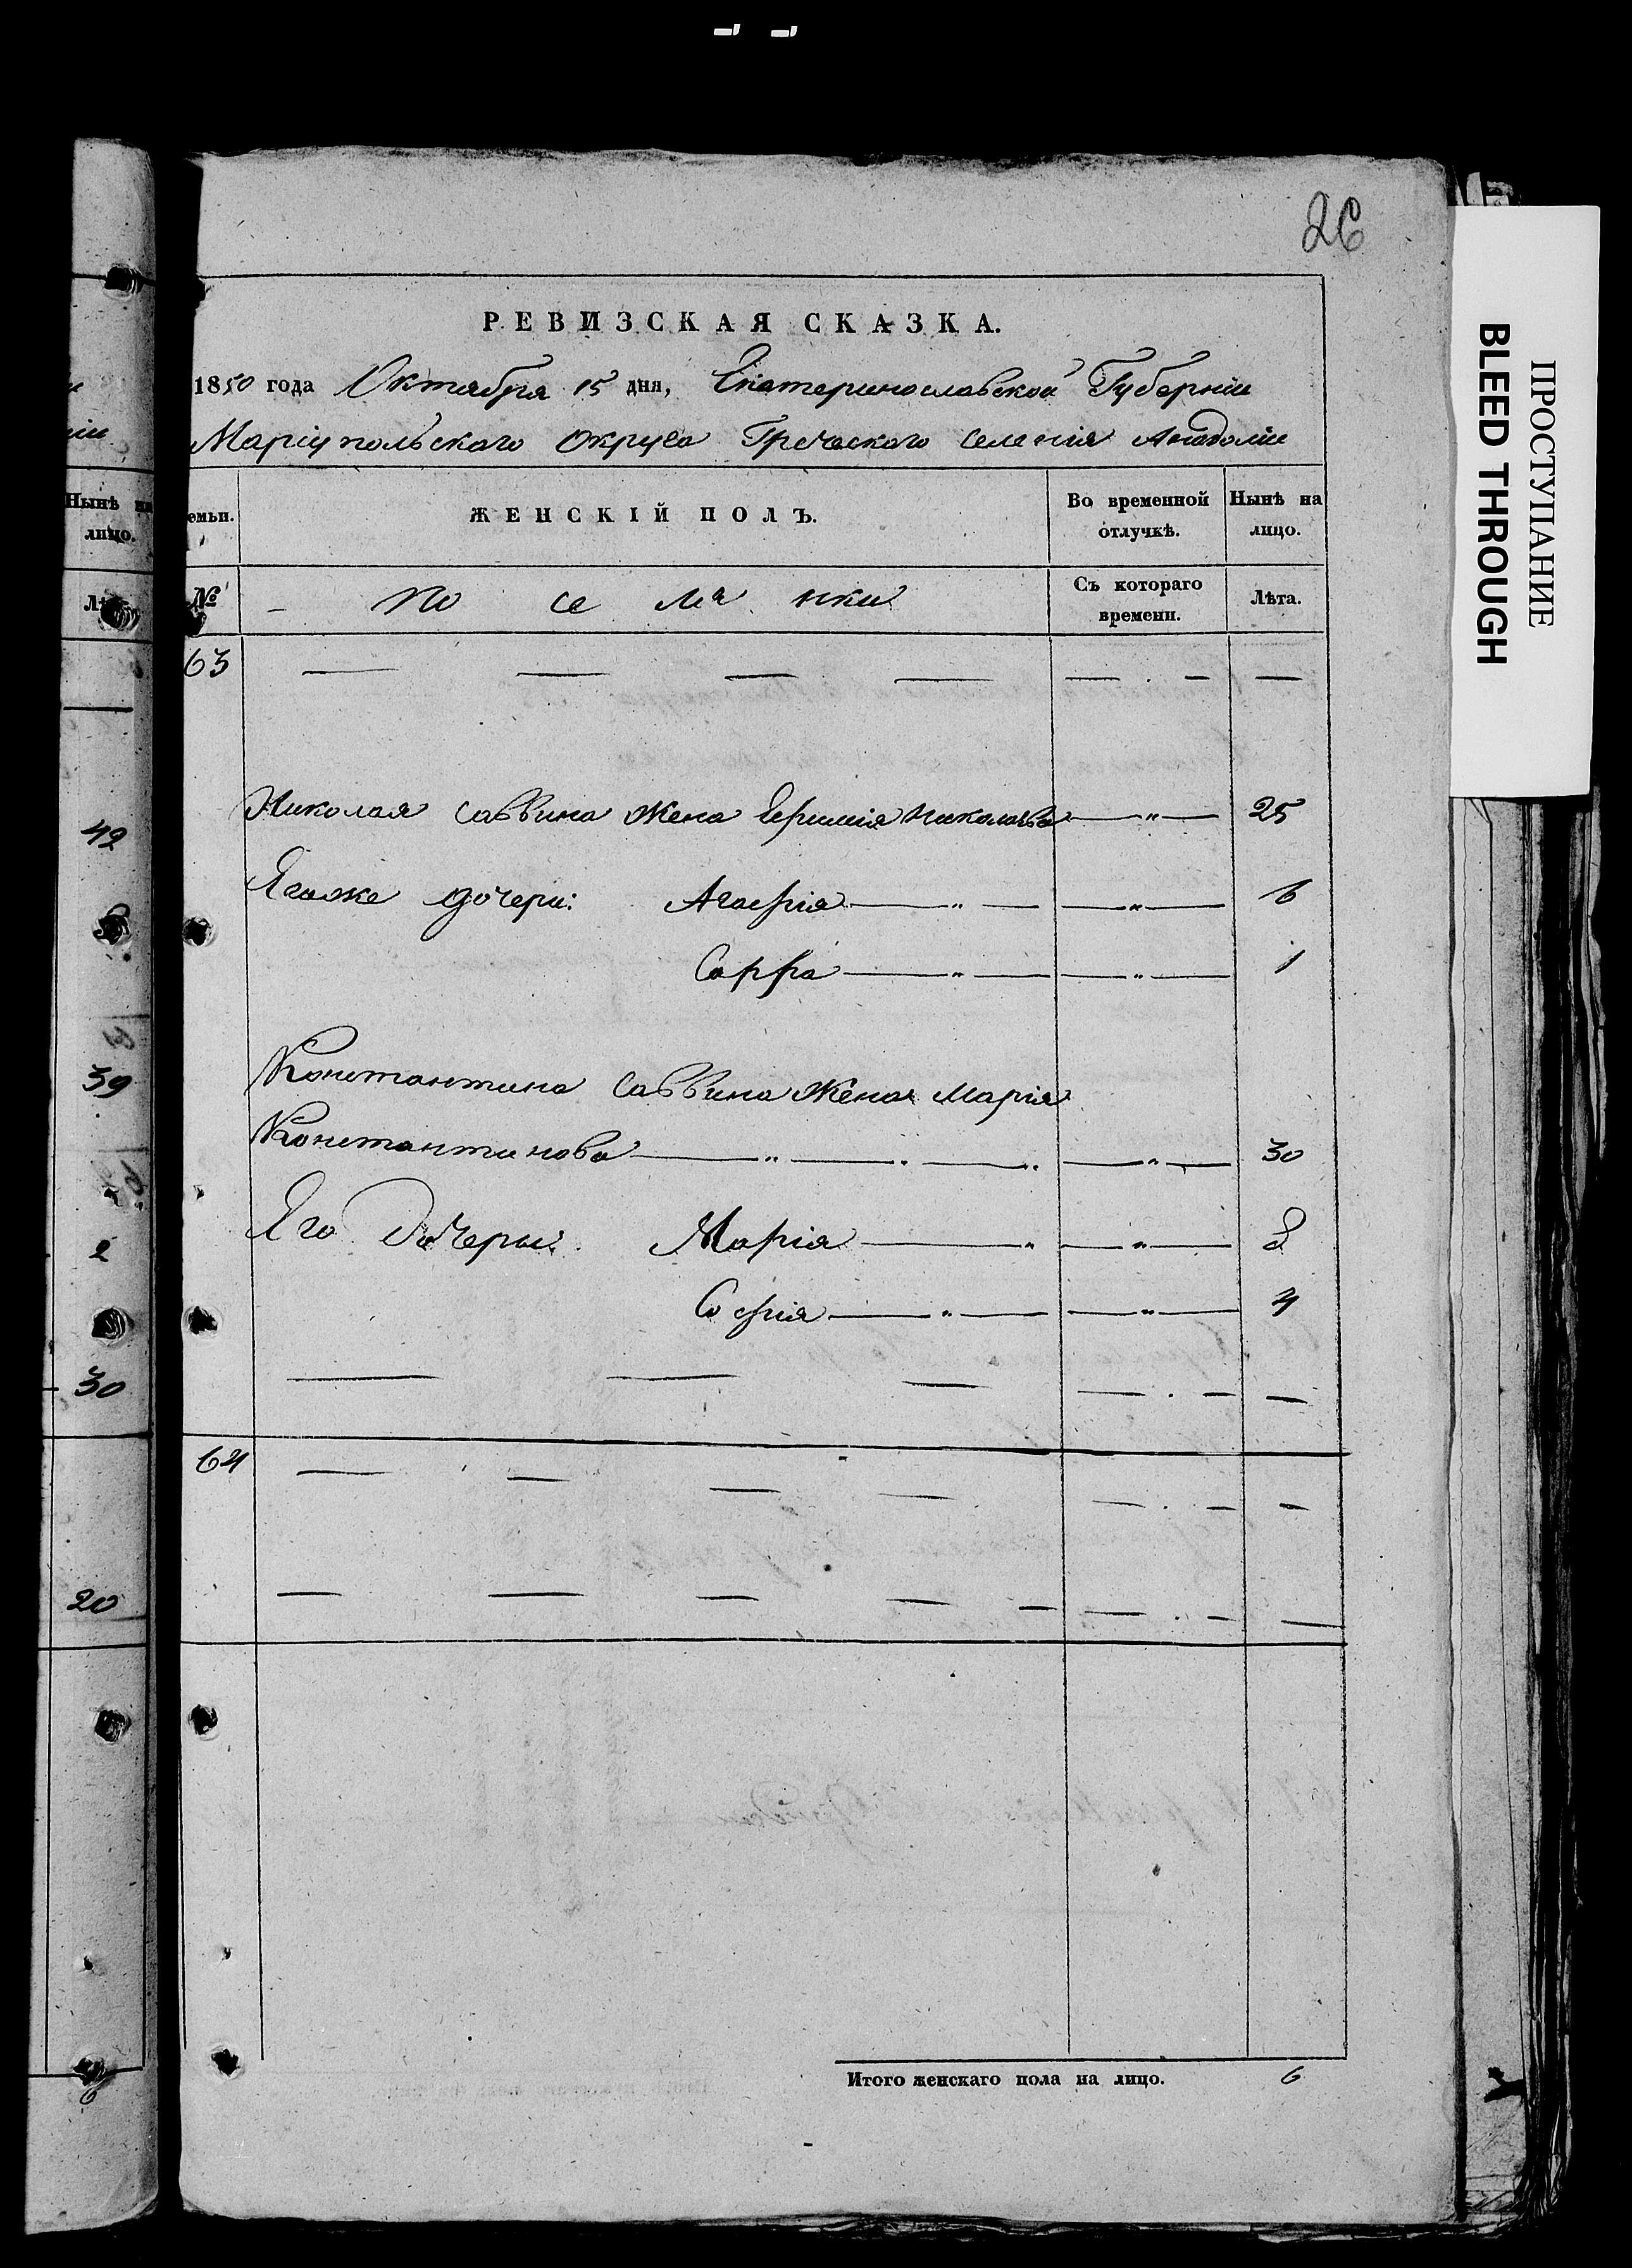 26
РЕВИЗСКАЯ СКАЗКА.
1850 года Октября 15 дня, Екатеринославской Губерніи
Маріупольскаго Округа Греческаго селенія Анадоліи
Нынѣ на лицо.
емьи.
ЖЕНСКІЙ ПОЛЪ.
Во временной отлучкѣ.
Нынѣ на лицо.
№
по се ля нки
Съ котораго времени.
Лѣта.
63
Николая Саввина жена Николаева 25
42
Егоже дочери: Агафія 6
Сарра 1
39
Константина Саввина жена Марія
Константинова 30
2
Его дочери: Марія 8
Софія 4
30
64
20
Итого женскаго пола на лицо. 6
6
ПРОСТУПАНИЕ
BLEED THROUGH